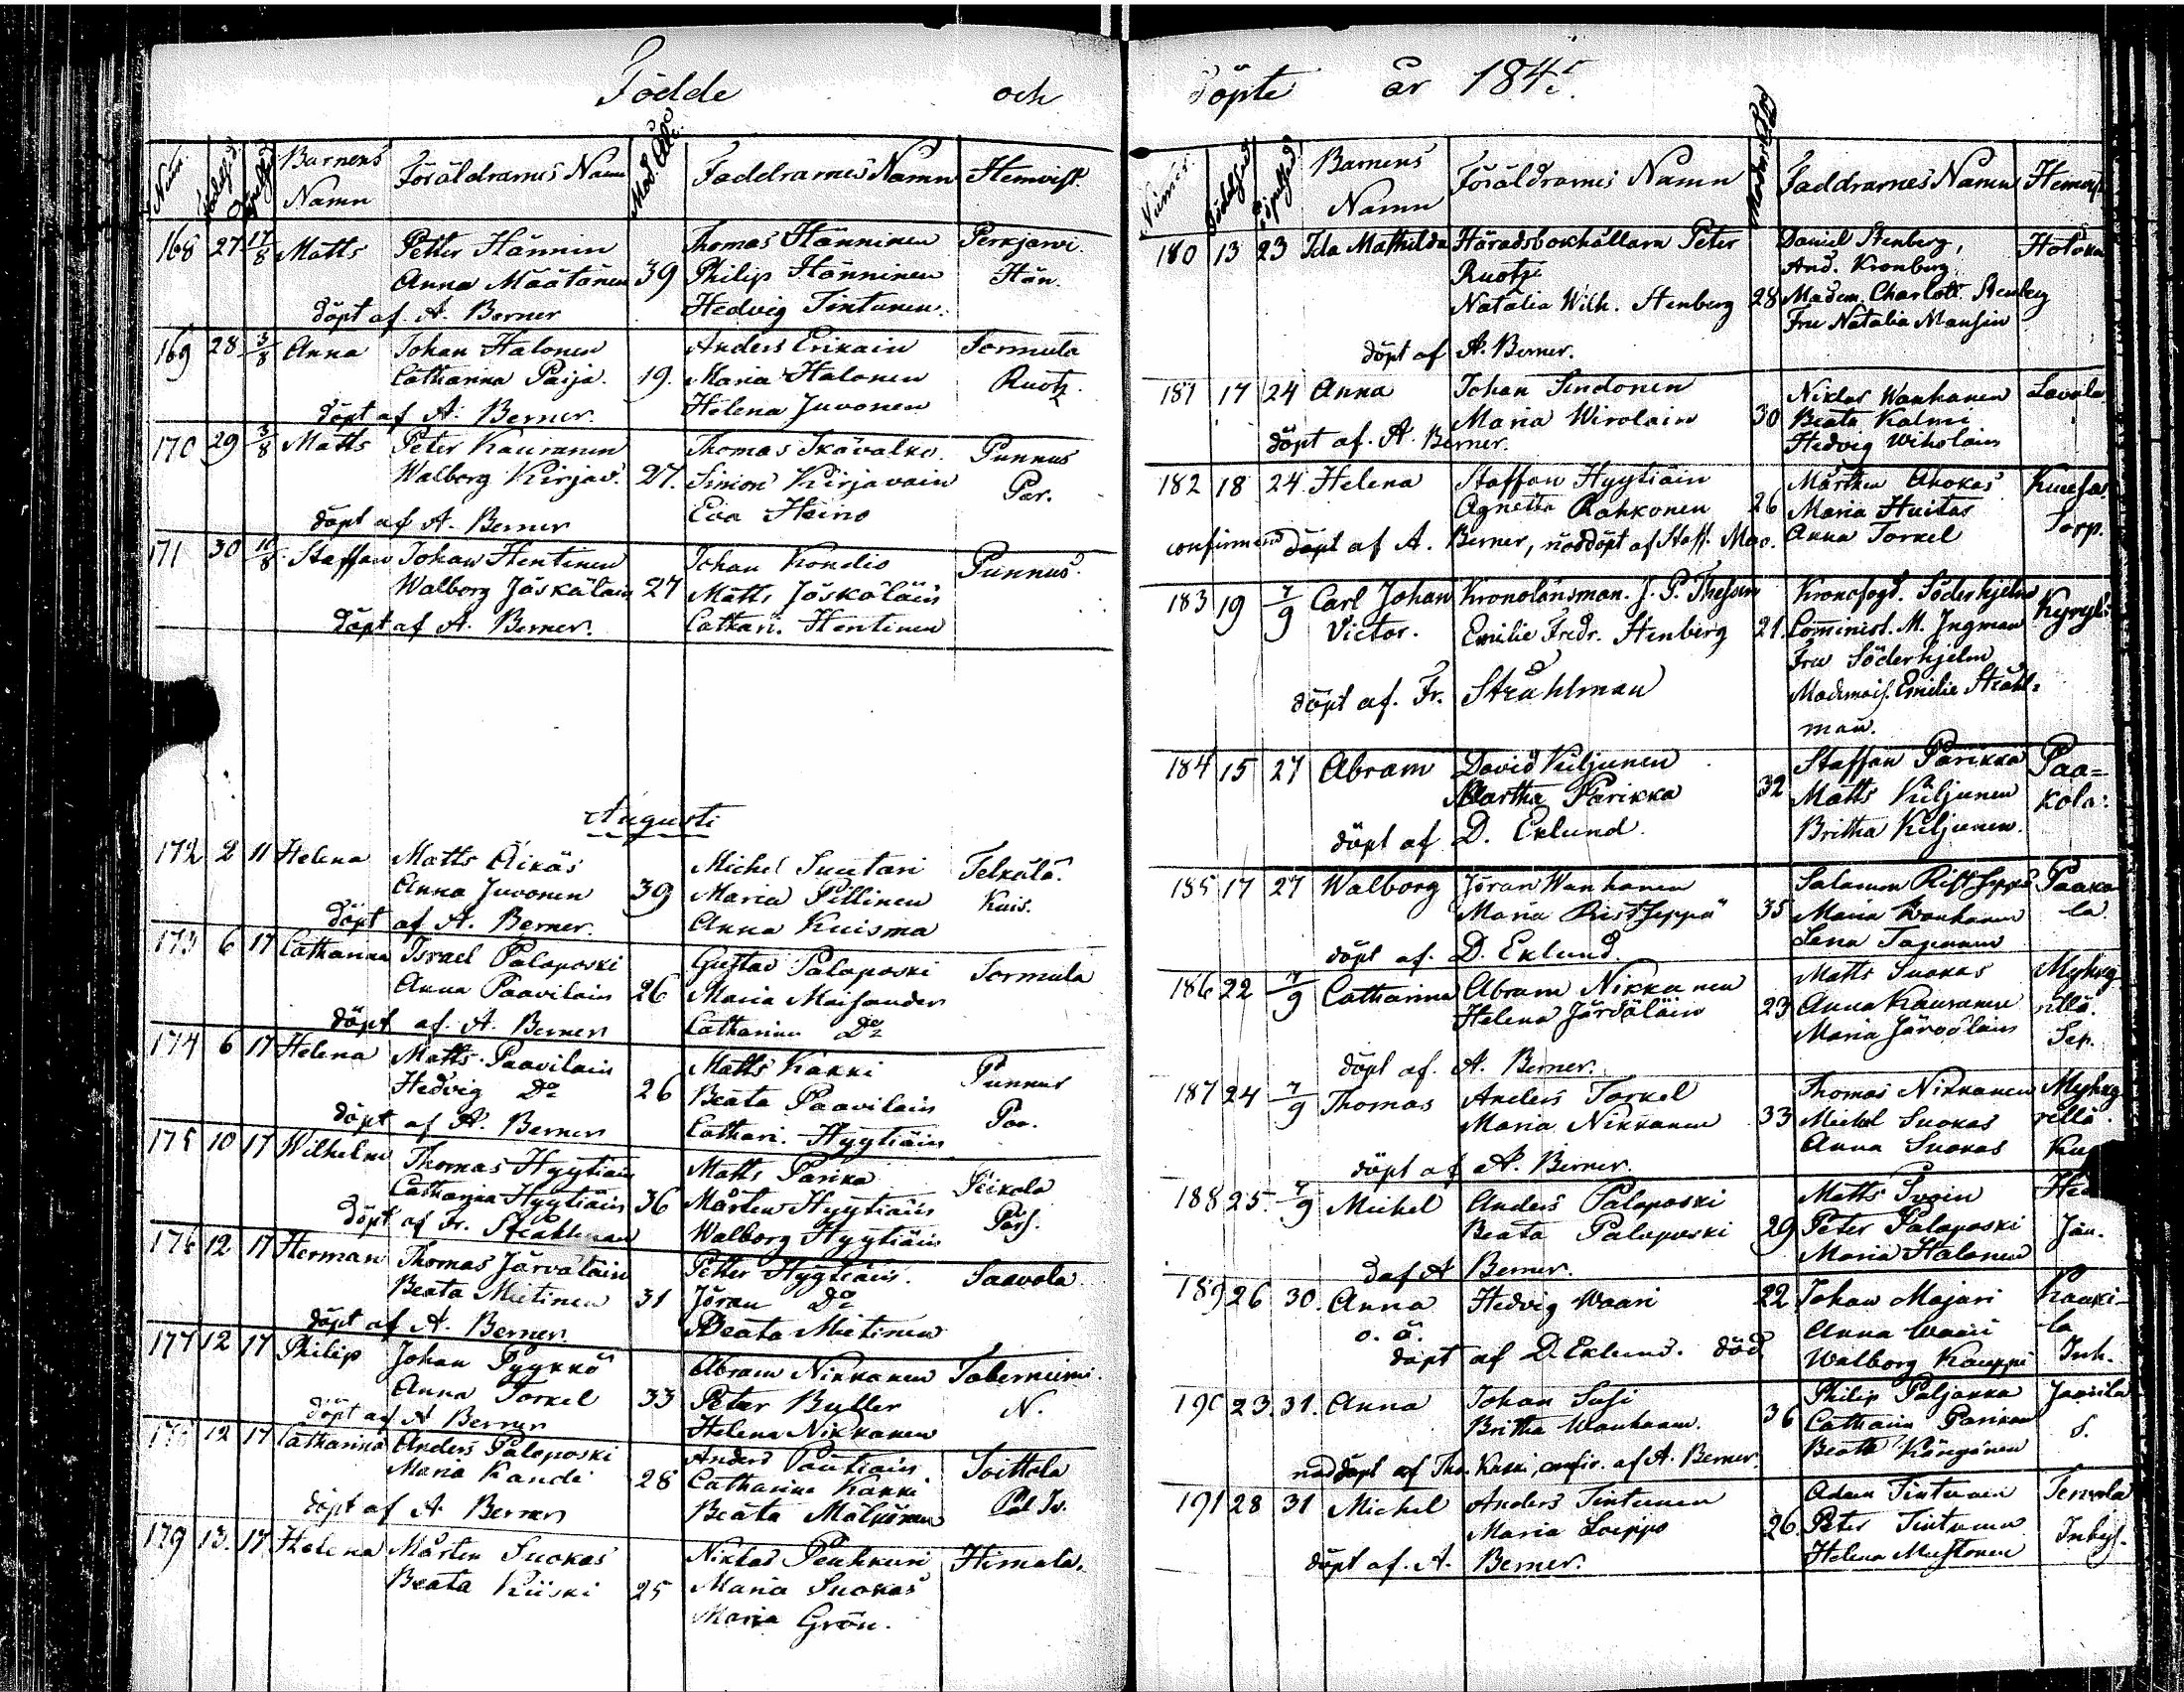 Födde och
Num. Födelsed. Döpelsed. Barnens Namn Föräldrarnes Namn Mod. Åld. Faddrarnes Namn Hemvist.
168 27 17/8 Matts Petter Hännin Thomas Hänninen Perkjarvi.
Anna Määtänen 39 Philip Hänninen Hän.
döpt af A. Berner Hedvig Tintunen.
169 28 3/8 Anna Johan Halonen Anders Erikain Sormula
Catharina Paija. 19. Maria Halonen Ruotz.
döpt af A. Berner. Helena Juvonen
170 29 3/8 Matts Peter Kauranen Thomas Skävalko. Punnus
Walborg Kirjav. 27. Simon Kirjavain Par.
döpt af A. Berner Eva Heino
171 30 10/8 Staffan Johan Hentinen Johan Kondis Punnus.
Walborg Jäskäläin 27 Matts Jöskäläin
döpt af A. Berner. Cathari. Hentinen
Augusti
172 2 11 Helena Matts Äikäs Michel Suutari Telkälä.
Anna Juvonen 39 Maria Pillinen Kuis.
döpt af A. Berner. Anna Kuisma
173 6 17 Catharina Israel Palaposki Gustav Palaposki Sormula
Anna Paavilain 26 Maria Maisander
döpt af. A. Berner Catharina Do
174 6 17 Helena Matts Paavilain Matts Kakki Punnus
Hedvig Do 26 Beata Paavilain Par.
döpt af A. Berner Cathari. Hyytiäin
175 10 17 Wilhelm Thomas Hyytiäin Matts Parika Peikola
Catharina Hyytiäin 36 Mårten Hyytiäin Pars.
döpt af Fr. Stråhlman Walborg Hyytiäin
176 12 17 Herman Thomas Järväläin Petter Hyytiäin. Saavola
Beata Mietinen 31 Jöran Do
döpt af A. Berner. Beata Mietinen
177 12 17 Philip Johan Pyykkö Abram Nikkanen Taberniemi.
Anna Torkel 33 Peter Buller N.
döpt af A Berner Helena Nikkanen
178 12 17 Catharina Anders Palaposki Anders Poutiain Soittola
Maria Kandi 28 Catharina Kakki Pal Iv.
döpt af A Berner Beata Mälkönen
179 13. 17 Helena Mårten Suokas Niklas Peuhkuri Himala.
Beata Kiiski 25 Maria Suokas
Maria Grön.
döpte år 1845.
Numer. Födelsed. Döpelsed. Barnens Namn Föräldrarnes Namn Moders Åld. Faddrarnes Namn Hemvist
180 13 23 Ida Mathilda Häradsbokhållarn Peter Daniel Stenberg, Hotoka
Ruotzi And. Kronberg
Natalia Wilh. Stenberg 28 Madem. Charlott. Stenberg
Fru Natalia Mansin
döpt af A. Berner.
181 17 24 Anna Johan Sindonen Niklas Wanhanen Lavola.
Maria Wirolain 30 Beata Kalmi
döpt af. A. Berner. Hedvig Wiholain
182 18 24 Helena Staffan Hyytiäin Mårten Ahokas
Agnetta Rahkonen 26 Maria Huitas Torp.
confirmerad döpt af A. Berner, nöddöpt af Staff. Anna Torkel
183 19 7/9 Carl Johan Kronolänsman. J. P. Kronofogd. Söderhjelm Kyrylä
Victor. Emilie Fredr. Stenberg 21. Comminist. M. Ingman
Fru Söderhjelm
döpt af. Fr. Stråhlman Mademois. Emilie Stråhl=
man.
184 15 27 Abram David Kiljunen Staffan Parikka Paa=
Martha Parikka 32 Matts Kiljunen kola.
döpt af D. Eklund. Britha Kiljunen.
185 17 27 Walborg Jöran Wanhanen Salamon Ristseppä Paako
Maria Ristseppä 35 Maria Wanhanen la
döpt af. D. Eklund. Lena Tapanen
186 22 7/9 Catharina Abram Nikkanen Matts Suokas Myhky
Helena Järväläin 23 Anna Kauranen rillä.
Maria Järväläin Sep.
döpt af. A. Berner.
187 24 7/9 Thomas Anders Torkel Thomas Nikkanen Myhky
Maria Nikkanen 33 Michel Suokas rillä.
Anna Suokas
döpt af A. Berner.
188 25. 7/9 Michel Anders Palaposki Matts
Beata Palaposki 29 Peter Palaposki Jän.
Maria Halonen
d. af A Berner.
189 26 30. Anna Hedvig Waari 22 Johan Majari Kauki-
o. ä. Anna Waari la
döpt af D. Eklund. död Walborg Kauppi Inh.
190 23. 31. Anna Johan Susi Philip Paljakka Jaarila
Britha Wanhanen. 36 Catharin Parikan S.
nöddöpt af Tho. Kakki, confir. af A. Berner. Beata Känganen
191 28 31 Michel Anders Tintunen Adam Tintunen Tervola
Maria Loippo 26 Peter Tintunen Inhys.
döpt af. A. Berner. Helena Mustonen